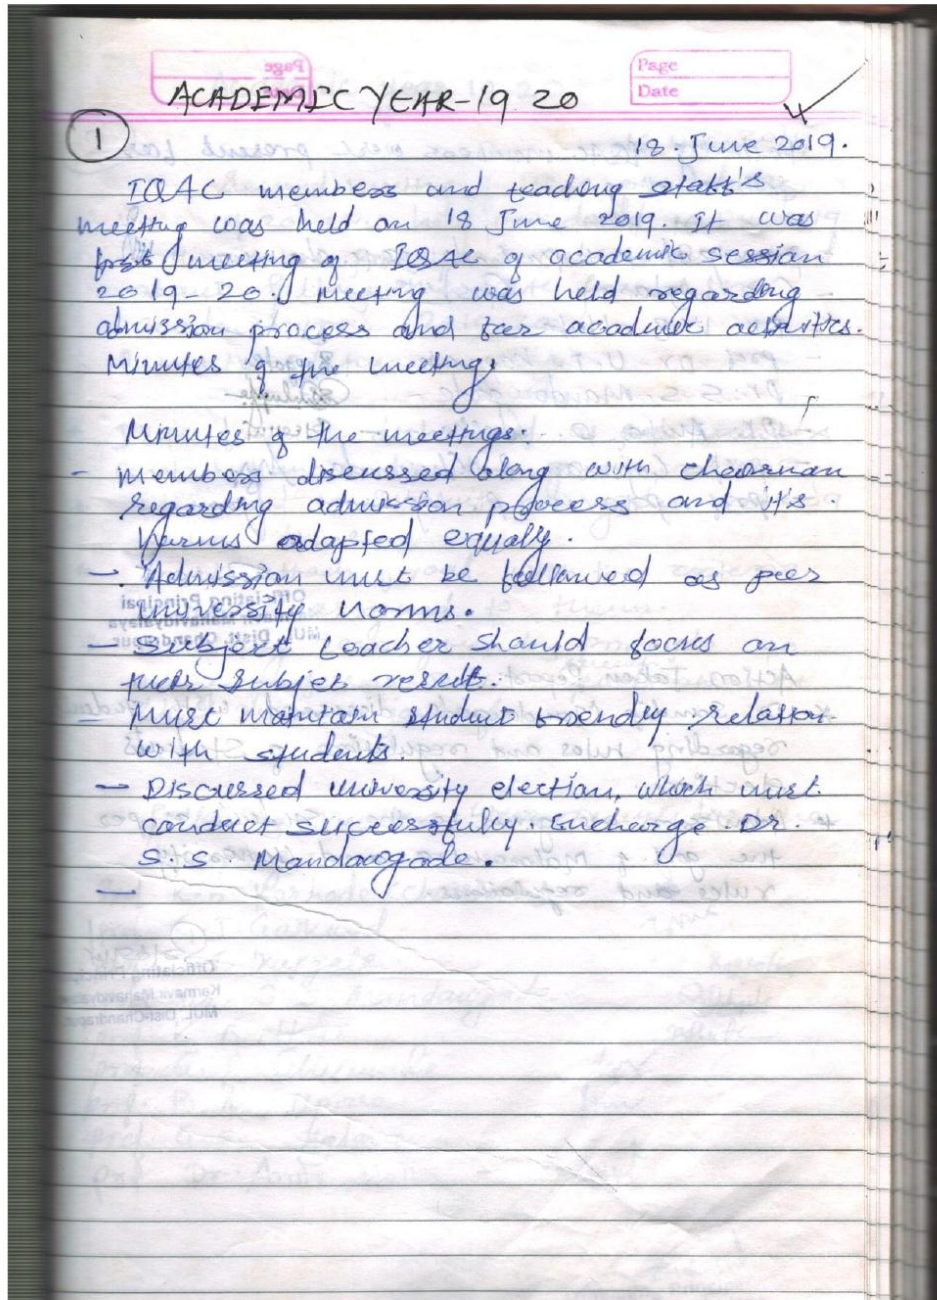 Page
Date
ACADEMIC YEAR-19 20
1
18 June 2019.
IQAC members and teaching staff's
meeting was held on 18 June 2019. It was
first meeting of IQAC of academic session
2019-20. Meeting was held regarding
admission process and for academic activities.
Minutes of the meeting.
Minutes of the meetings.
- members discussed along with chairman
regarding admission process and it's
Norms adapted equally.
- Admission must be followed as per
University Norms.
- Subject teacher should focus on
their subject result.
- Must maintain student friendly relation
with students.
- Discussed university election, which must
conduct successfully. Encharge Dr.
S.S. Mandavgade.
-